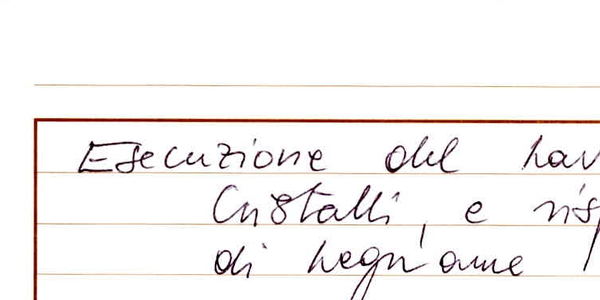 Esecuzione del lav
Cristalli, e ris
di legname